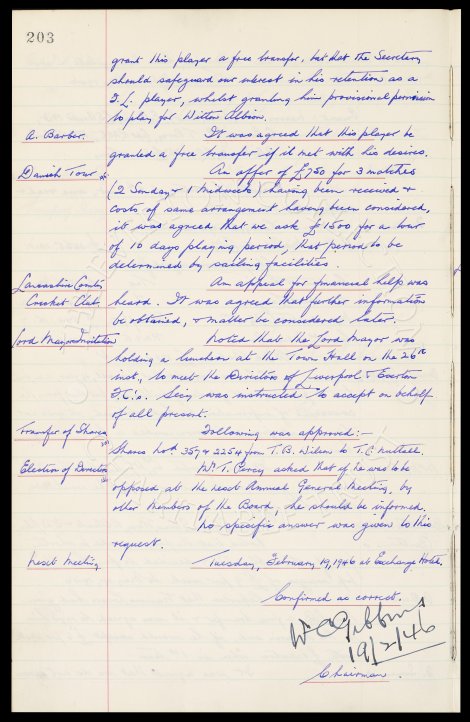 203
grant this player a free transfer, but that the Secretary
should safeguard our interest in his retention as a
F.L. player, whilst granting him provisional permission
to play for Witton Albion.
A. Barber. It was agreed that this player be
granted a free transfer if it met with his desires.
Danish Tour An offer of £750 for 3 matches
(2 Sunday & 1 Midweek) having been received &
costs of same arrangement having been considered,
it was agreed that we ask £1500 for a tour
of 10 days playing period, that period to be
determined by sailing facilities.
Lancashire County An appeal for financial help was
Cricket Club. heard. It was agreed that further information
be obtained, & matter be considered later.
Lord Mayors Invitation Noted that the Lord Mayor was
holding a luncheon at the Town Hall on the 26th
inst., to meet the Directors of Liverpool & Everton
F.C's. Secy was instructed to accept on behalf
of all present.
Transfer of Shares Following was approved:-
Shares from T.B. Wilson to T.C. Nuttall.
Election of Directors Mr. T. Percy asked that if he was to be
opposed at the next Annual General Meeting, by
other Members of the Board, he should be informed.
No specific answer was given to this
request.
Next Meeting Tuesday, February 19, 1946 at Exchange Hotel.
Confirmed as correct.
W C Gibbins
19/2/46
Chairman.